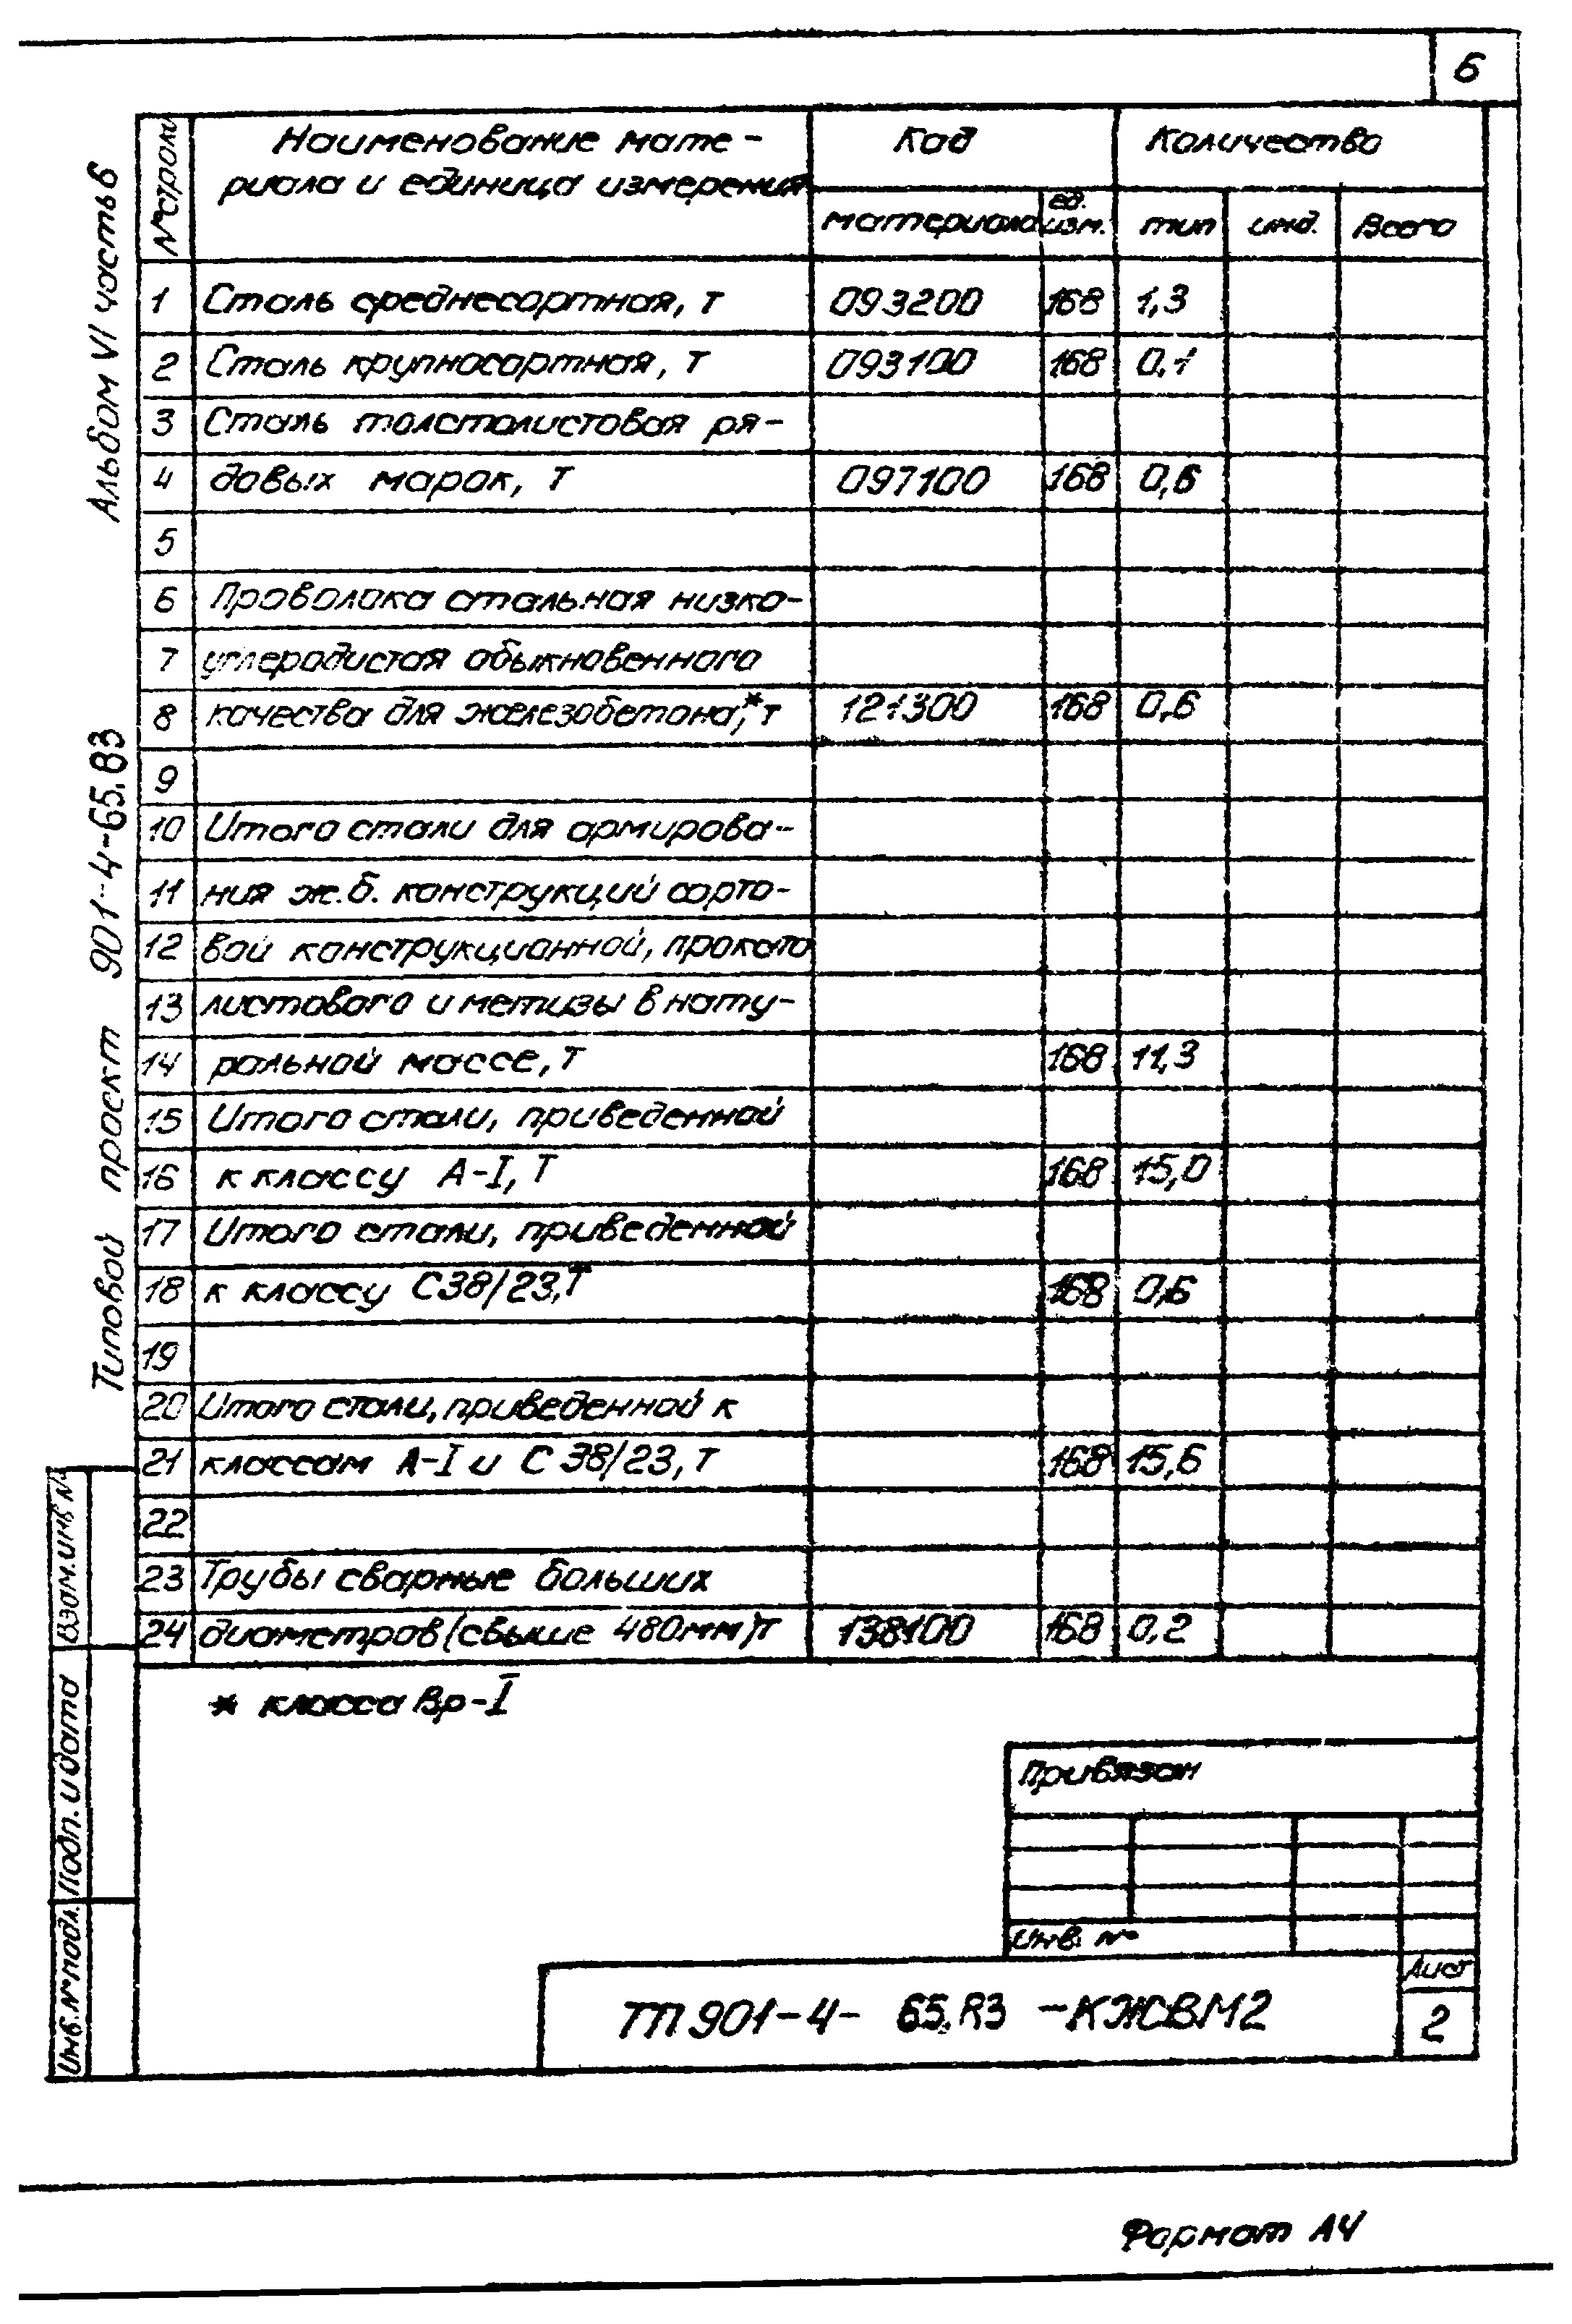 6
Альбом VI часть 6
Типовой проект 901-4-65.83
№ строки
Наименование мате-
риала и единица измерения
Код
Количество
материала
ед. изм.
тип
инд.
Всего
1 Сталь среднесортная, т 093200 168 1,3
2 Сталь крупносортная, т 093100 168 0,1
3 Сталь толстолистовая ря-
4 довых марок, т 097100 168 0,6
5
6 Проволока стальная низко-
7 углеродистая обыкновенного
8 качества для железобетона,* т 121300 168 0,6
9
10 Итого стали для армирова-
11 ния ж.б. конструкций сорто-
12 вой конструкционной, проката
13 листового и метизы в нату-
14 ральной массе, т 168 11,3
15 Итого стали, приведенной
16 к классу А-I, т 168 15,0
17 Итого стали, приведенной
18 к классу С38/23, т 168 0,6
19
20 Итого стали, приведенной к
21 классам А-I и С 38/23, т 168 15,6
22
23 Трубы сварные больших
24 диаметров (свыше 480мм) т 138100 168 0,2
* класса Вр-I
Взам. инв №
Подп. и дата
Инв. № подл.
Привязан
Инв. №
ТП 901-4- 65.83 -КЖВМ2
Лист
2
Формат А4